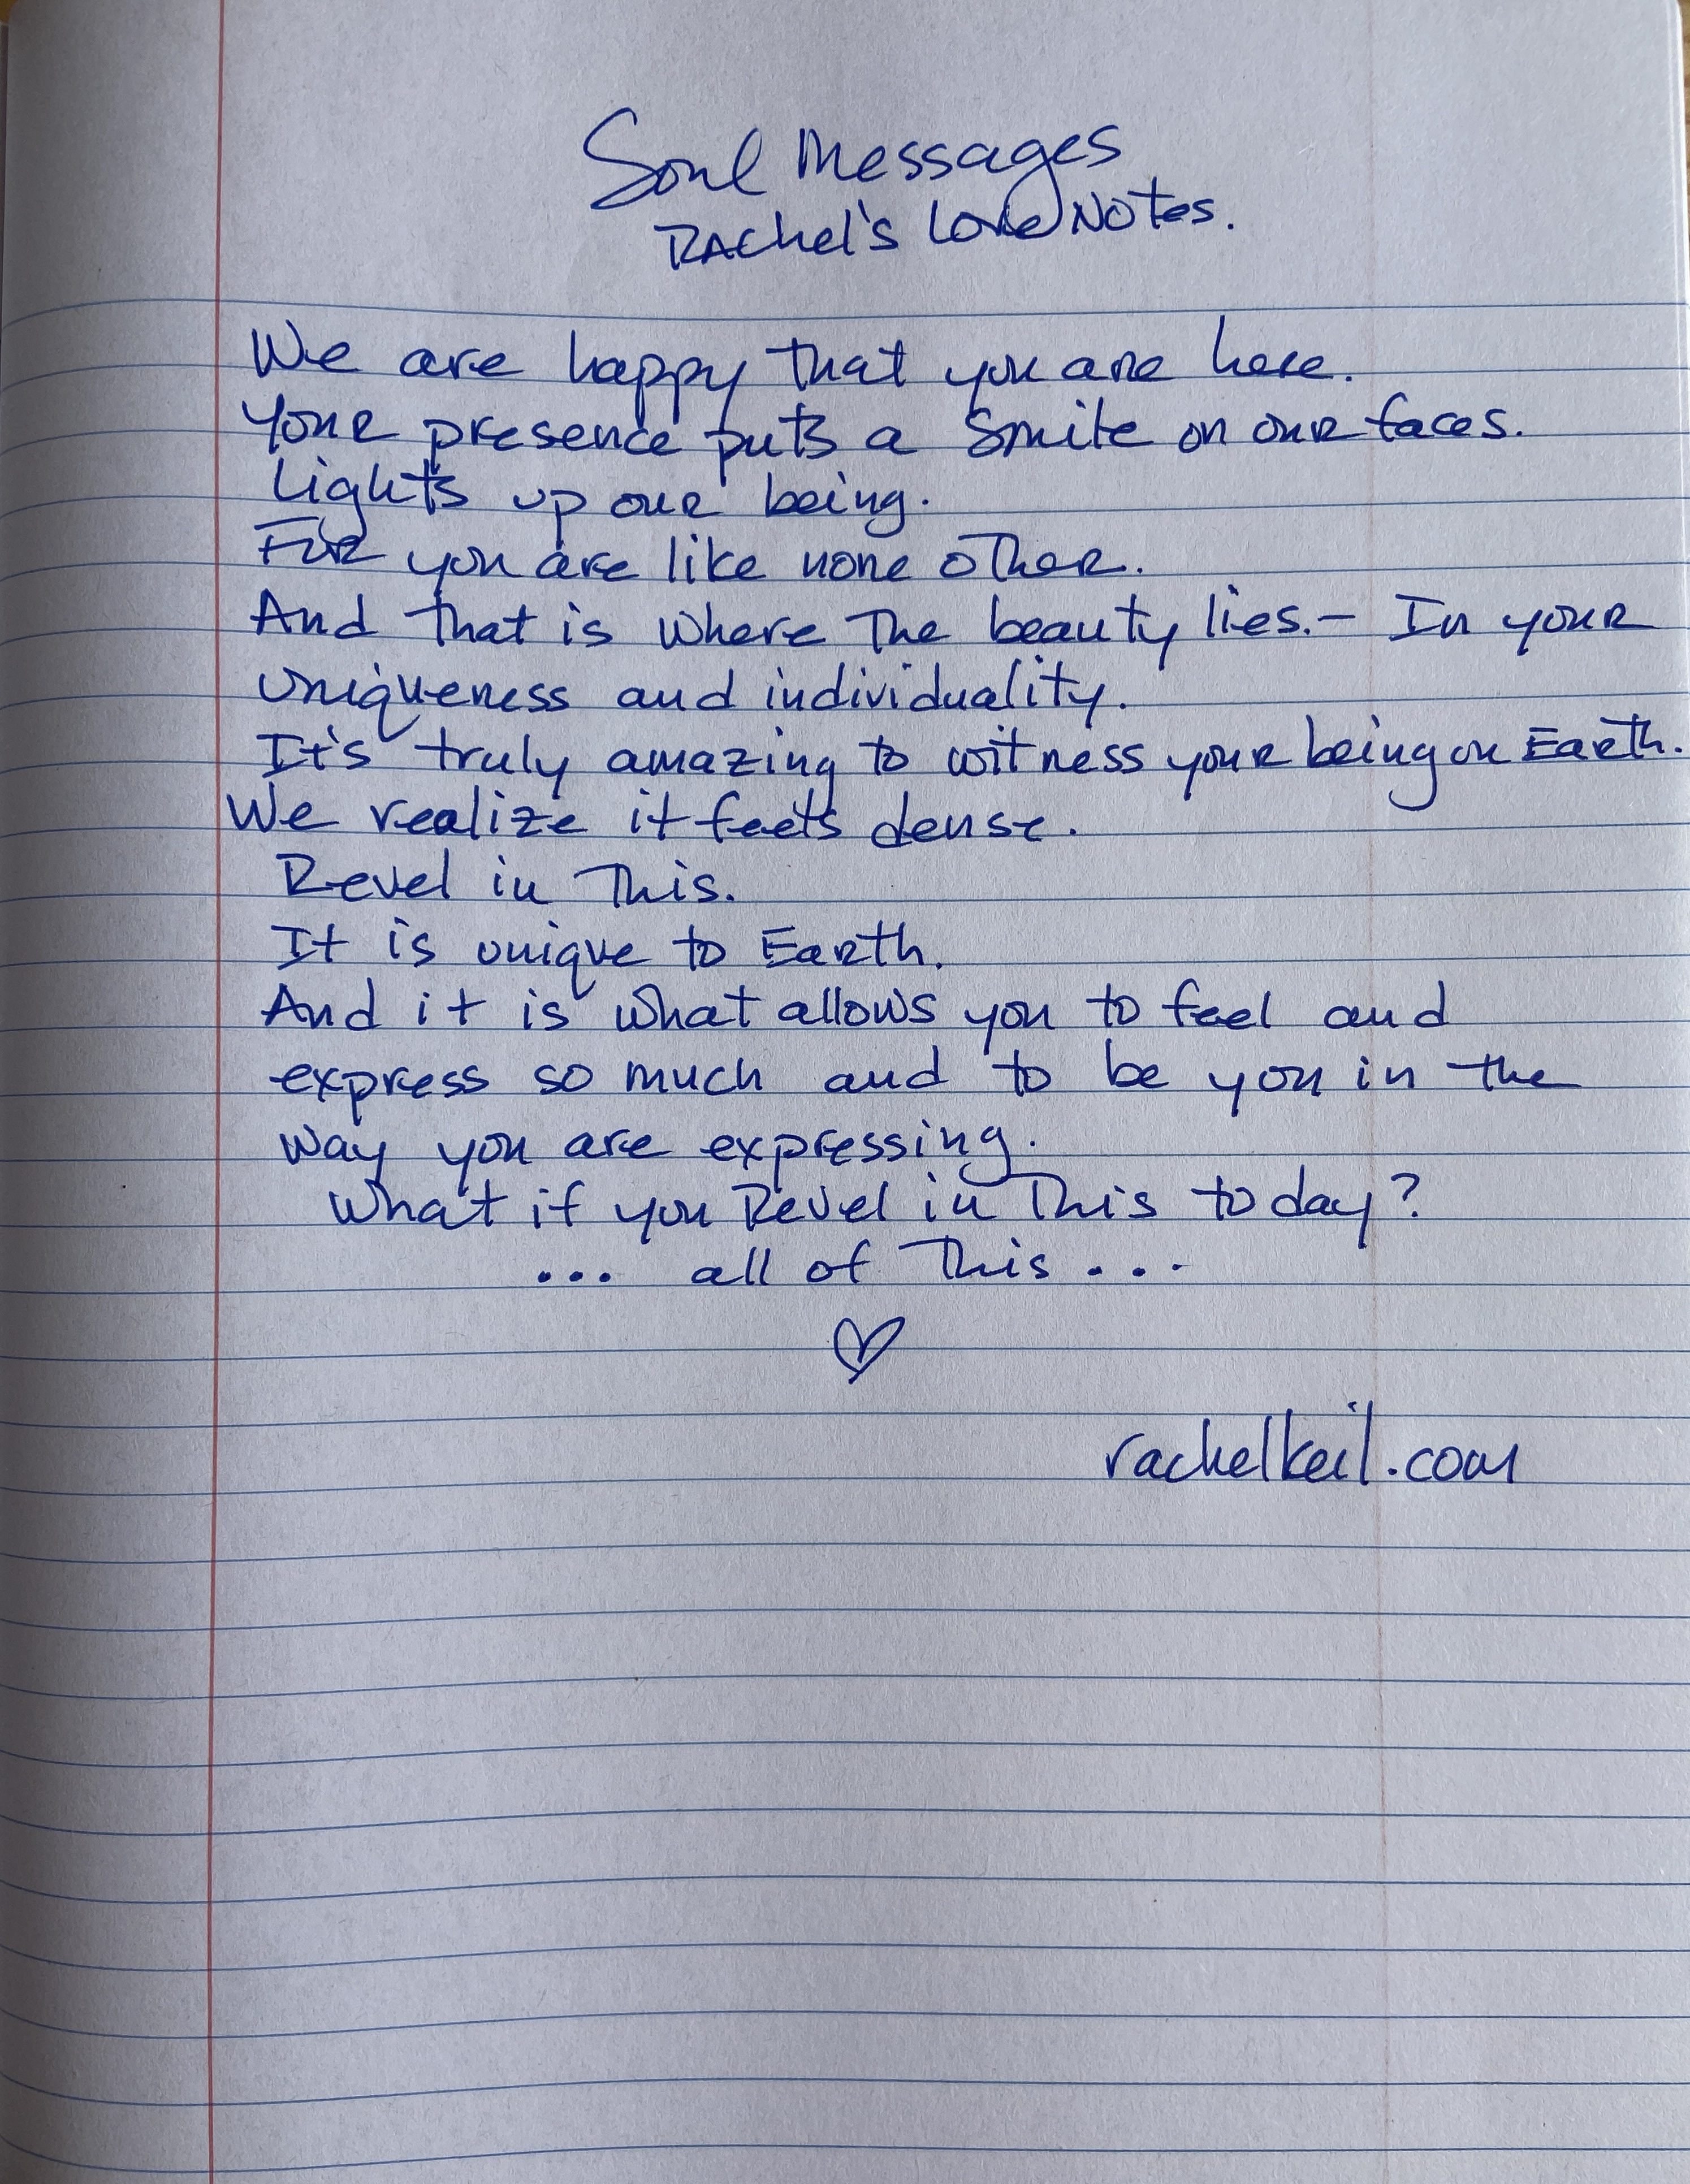 Soul Messages
Rachel's Love Notes.
We are happy that you are here.
Your presence puts a smile on our faces.
Lights up our being.
For you are like none other.
And that is where the beauty lies. – In your
uniqueness and individuality.
It's truly amazing to witness your being on Earth.
We realize it feels dense.
Revel in This.
It is unique to Earth.
And it is what allows you to feel and
express so much and to be you in the
way you are expressing.
What if you Revel in This today?
... all of This ...
♡
rachelkeil.com